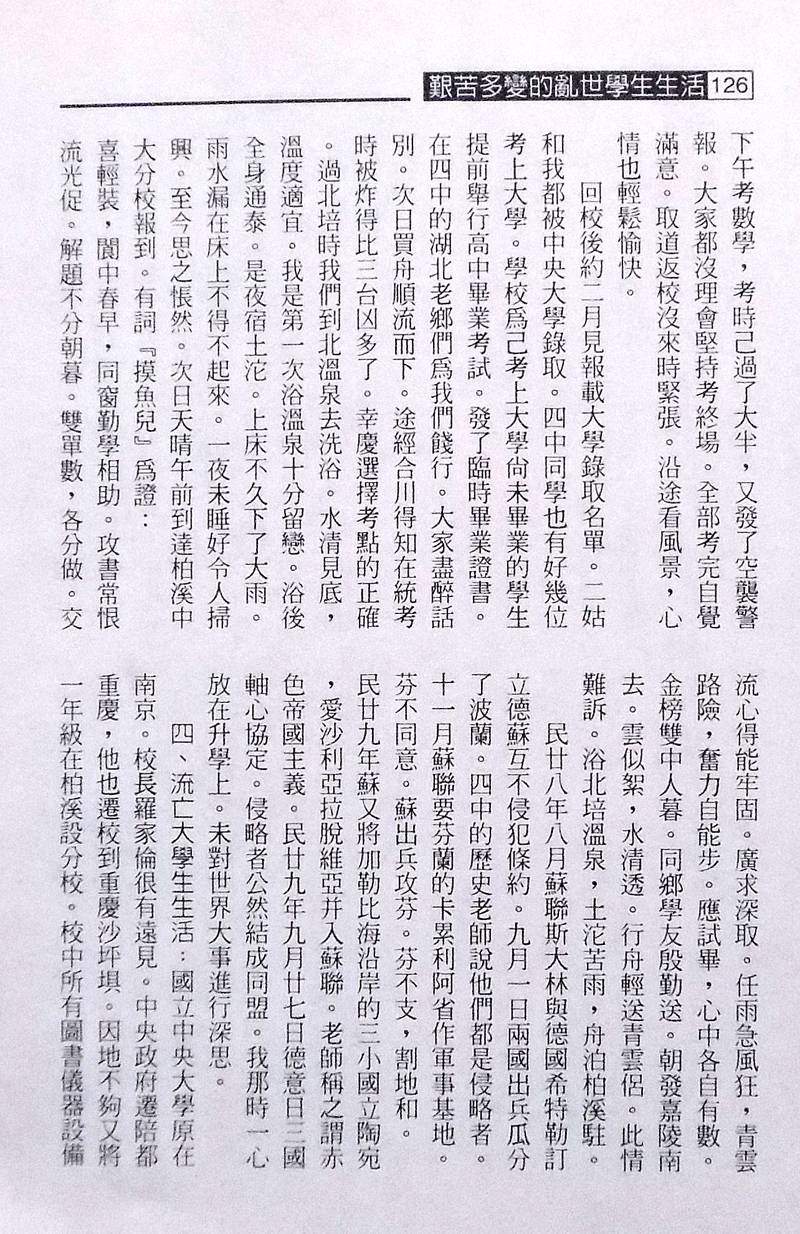 艱苦多變的亂世學生生活 126
下午考數學，考時已過了大半，又發了空襲警
報。大家都沒理會堅持考終場。全部考完自覺
滿意。取道返校沒來時緊張。沿途看風景，心
情也輕鬆愉快。
回校後約二月見報載大學錄取名單。二姑
和我都被中央大學錄取。四中同學也有好幾位
考上大學。學校爲己考上大學尙未畢業的學生
提前舉行高中畢業考試。發了臨時畢業證書。
在四中的湖北老鄉們爲我們餞行。大家盡醉話
別。次日買舟順流而下。途經合川得知在統考
時被炸得比三台凶多了。幸慶選擇考點的正確
。過北培時我們到北溫泉去洗浴。水清見底，
溫度適宜。我是第一次浴溫泉十分留戀。浴後
全身通泰。是夜宿土沱。上床不久下了大雨。
雨水漏在床上不得不起來。一夜未睡好令人掃
興。至今思之悵然。次日天晴午前到達柏溪中
大分校報到。有詞『摸魚兒』爲證：
喜輕裝，閬中春早，同窗勤學相助。攻書常恨
流光促。解題不分朝暮。雙單數，各分做。交
流心得能牢固。廣求深取。任雨急風狂，青雲
路險，奮力自能步。應試畢，心中各自有數。
金榜雙中人暮。同鄉學友殷勤送。朝發嘉陵南
去。雲似絮，水清透。行舟輕送青雲侶。此情
難訴。浴北培溫泉，土沱苦雨，舟泊柏溪駐。
民廿八年八月蘇聯斯大林與德國希特勒訂
立德蘇互不侵犯條約。九月一日兩國出兵瓜分
了波蘭。四中的歷史老師說他們都是侵略者。
十一月蘇聯要芬蘭的卡累利阿省作軍事基地。
芬不同意。蘇出兵攻芬。芬不支，割地和。
民廿九年蘇又將加勒比海沿岸的三小國立陶宛
，愛沙利亞拉脫維亞并入蘇聯。老師稱之謂赤
色帝國主義。民廿九年九月廿七日德意日三國
軸心協定。侵略者公然結成同盟。我那時一心
放在升學上。未對世界大事進行深思。
四、流亡大學生生活：國立中央大學原在
南京。校長羅家倫很有遠見。中央政府遷陪都
重慶，他也遷校到重慶沙坪埧。因地不夠又將
一年級在柏溪設分校。校中所有圖書儀器設備